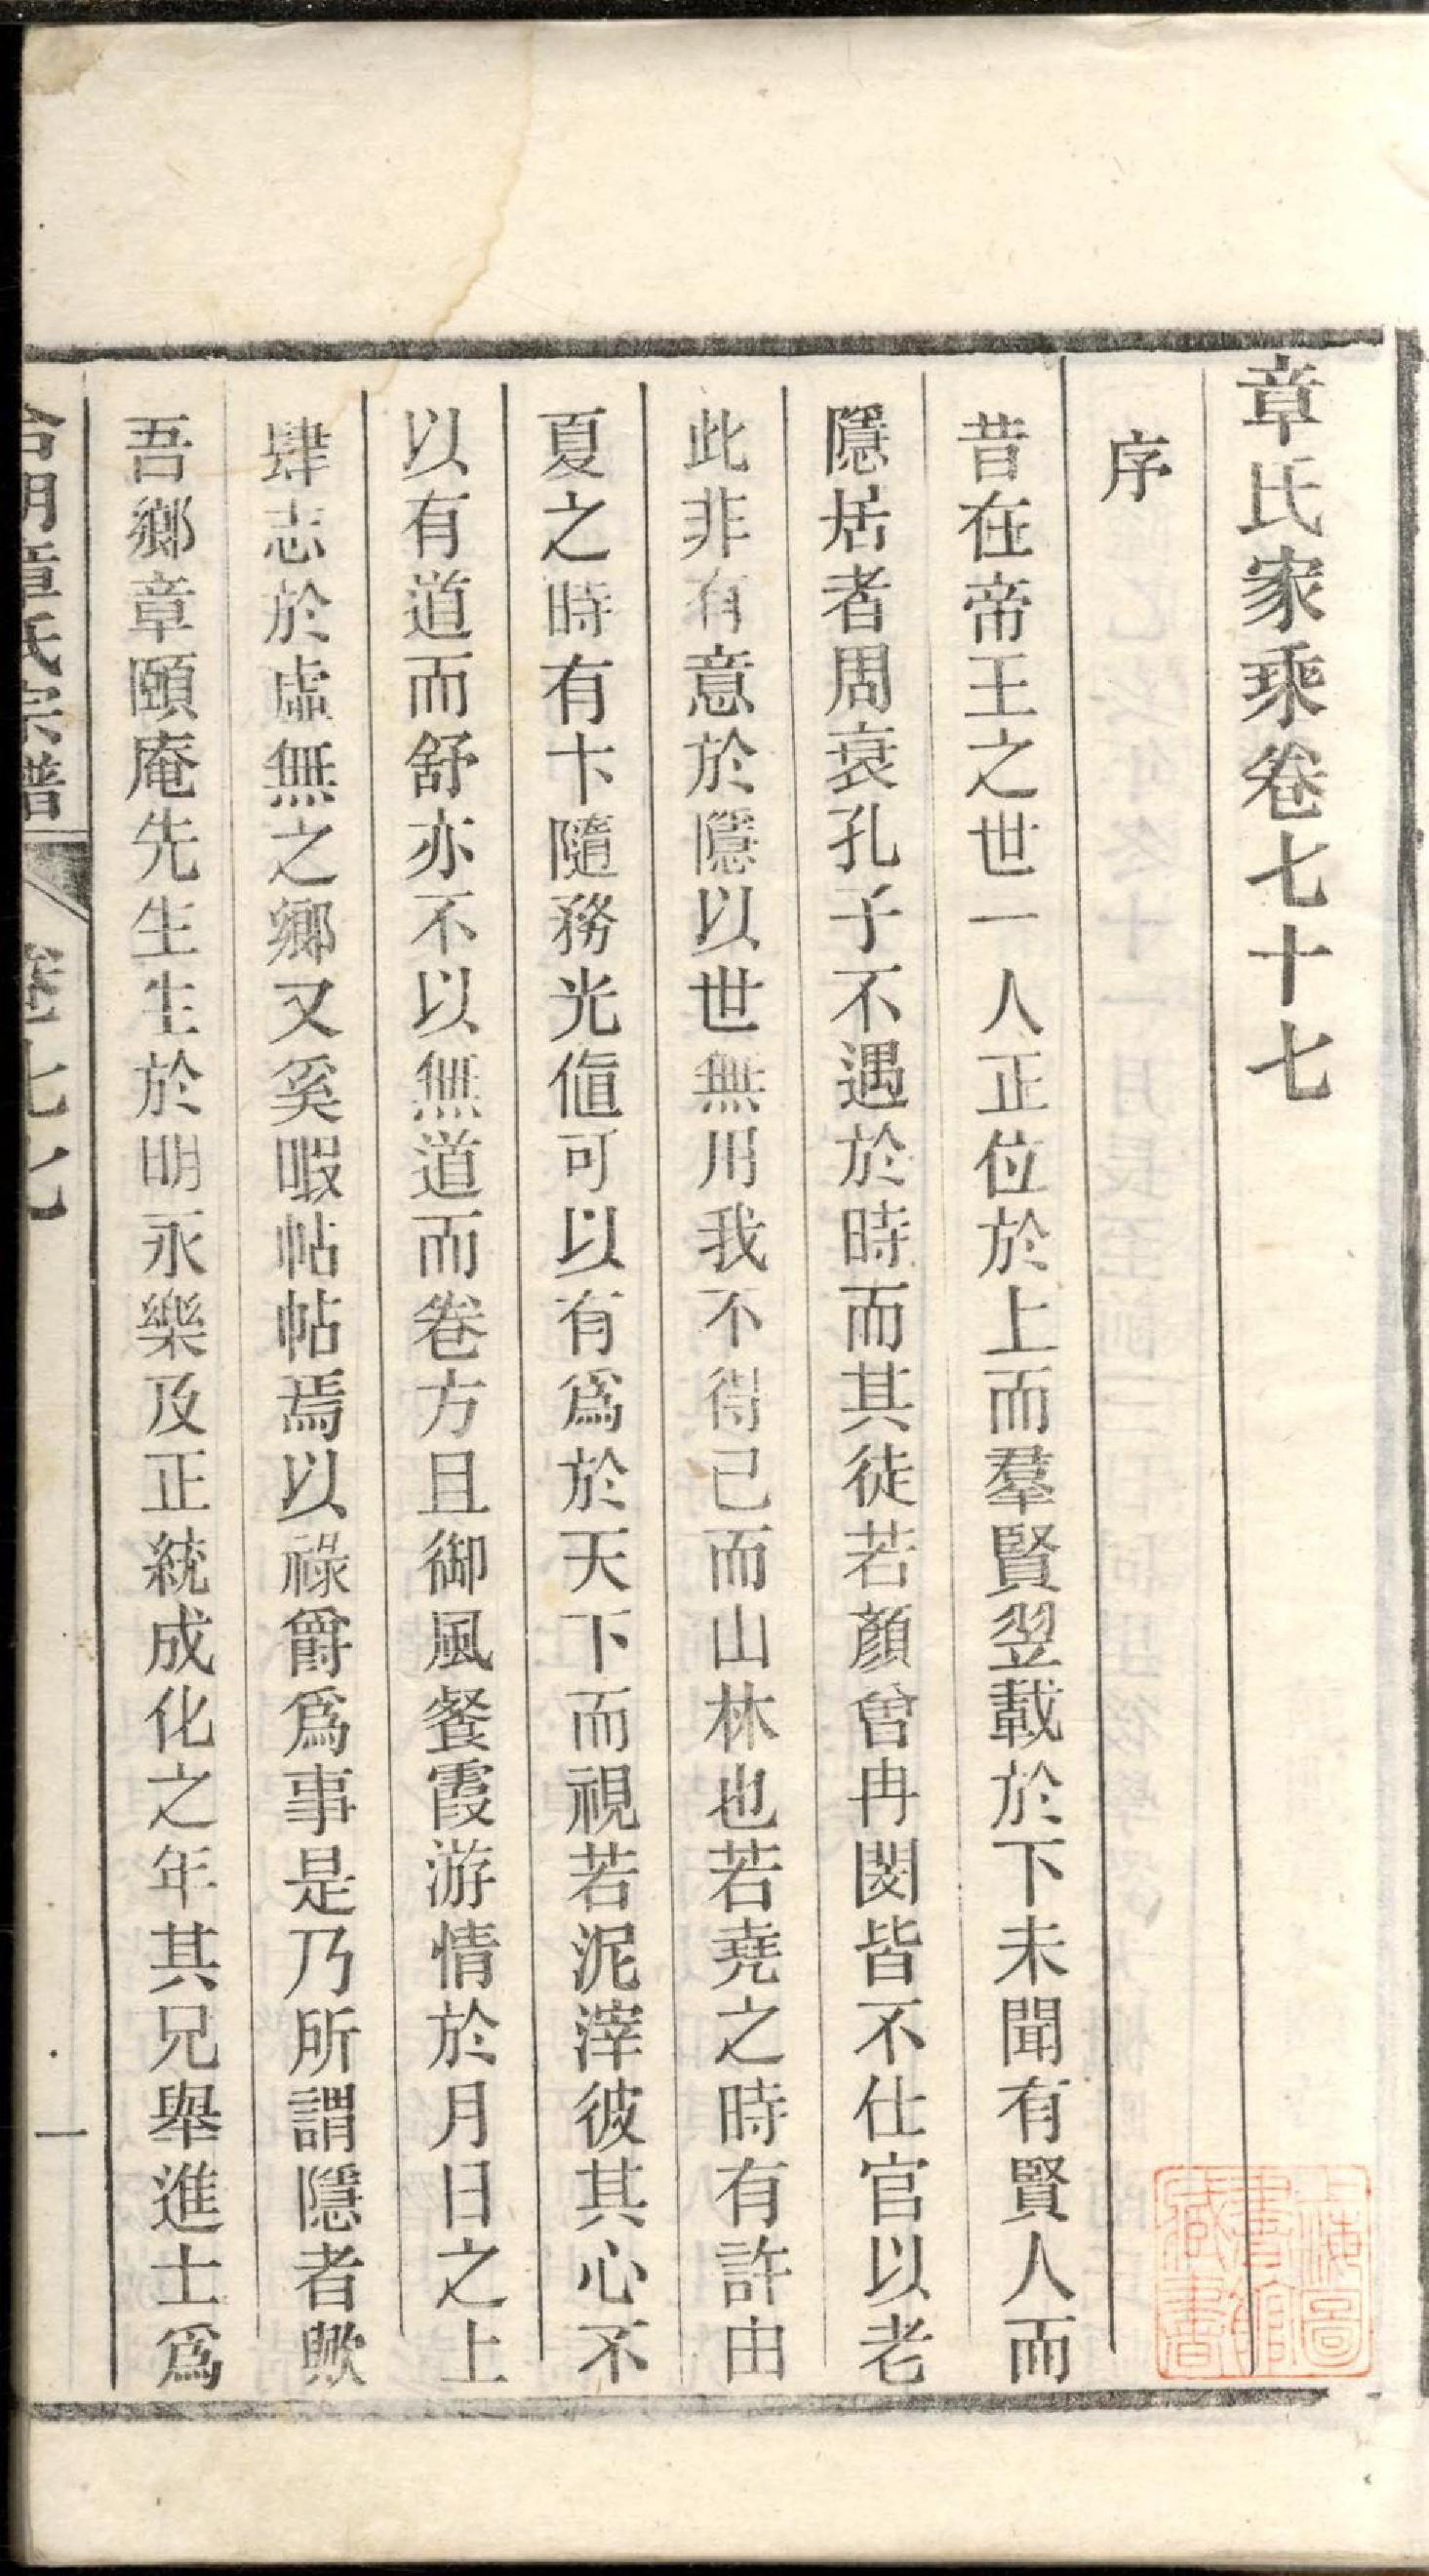 章氏家乘卷七十七
序
昔在帝王之世一人正位於上而羣賢翌載於下未聞有賢人而
隱居者周衰孔子不遇於時而其徒若顏曾冉閔皆不仕官以老
此非有意於隱以世無用我不得已而山林也若堯之時有許由
夏之時有卞隨務光値可以有爲於天下而視若泥滓彼其心不
以有道而舒亦不以無道而卷方且御風餐霞游情於月日之上
肆志於虛無之鄉又奚暇帖帖焉以祿爵爲事是乃所謂隱者歟
吾鄉章頤庵先生生於明永樂及正統成化之年其兄舉進士爲
章氏宗譜
卷七七
一
上海圖書館藏書